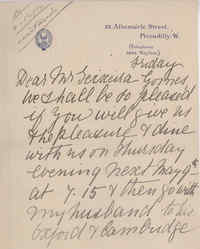 22 Albemarle Street,
Piccadilly. W.
(Telephone
Mayfair.)
Friday
Dear Mr Teixeira Gomes
We shall be so pleased
if you will give us
the pleasure & dine
with us on Thursday
evening next May 9th
at 7.15 & then go with
my husband to his
Oxford & Cambridge